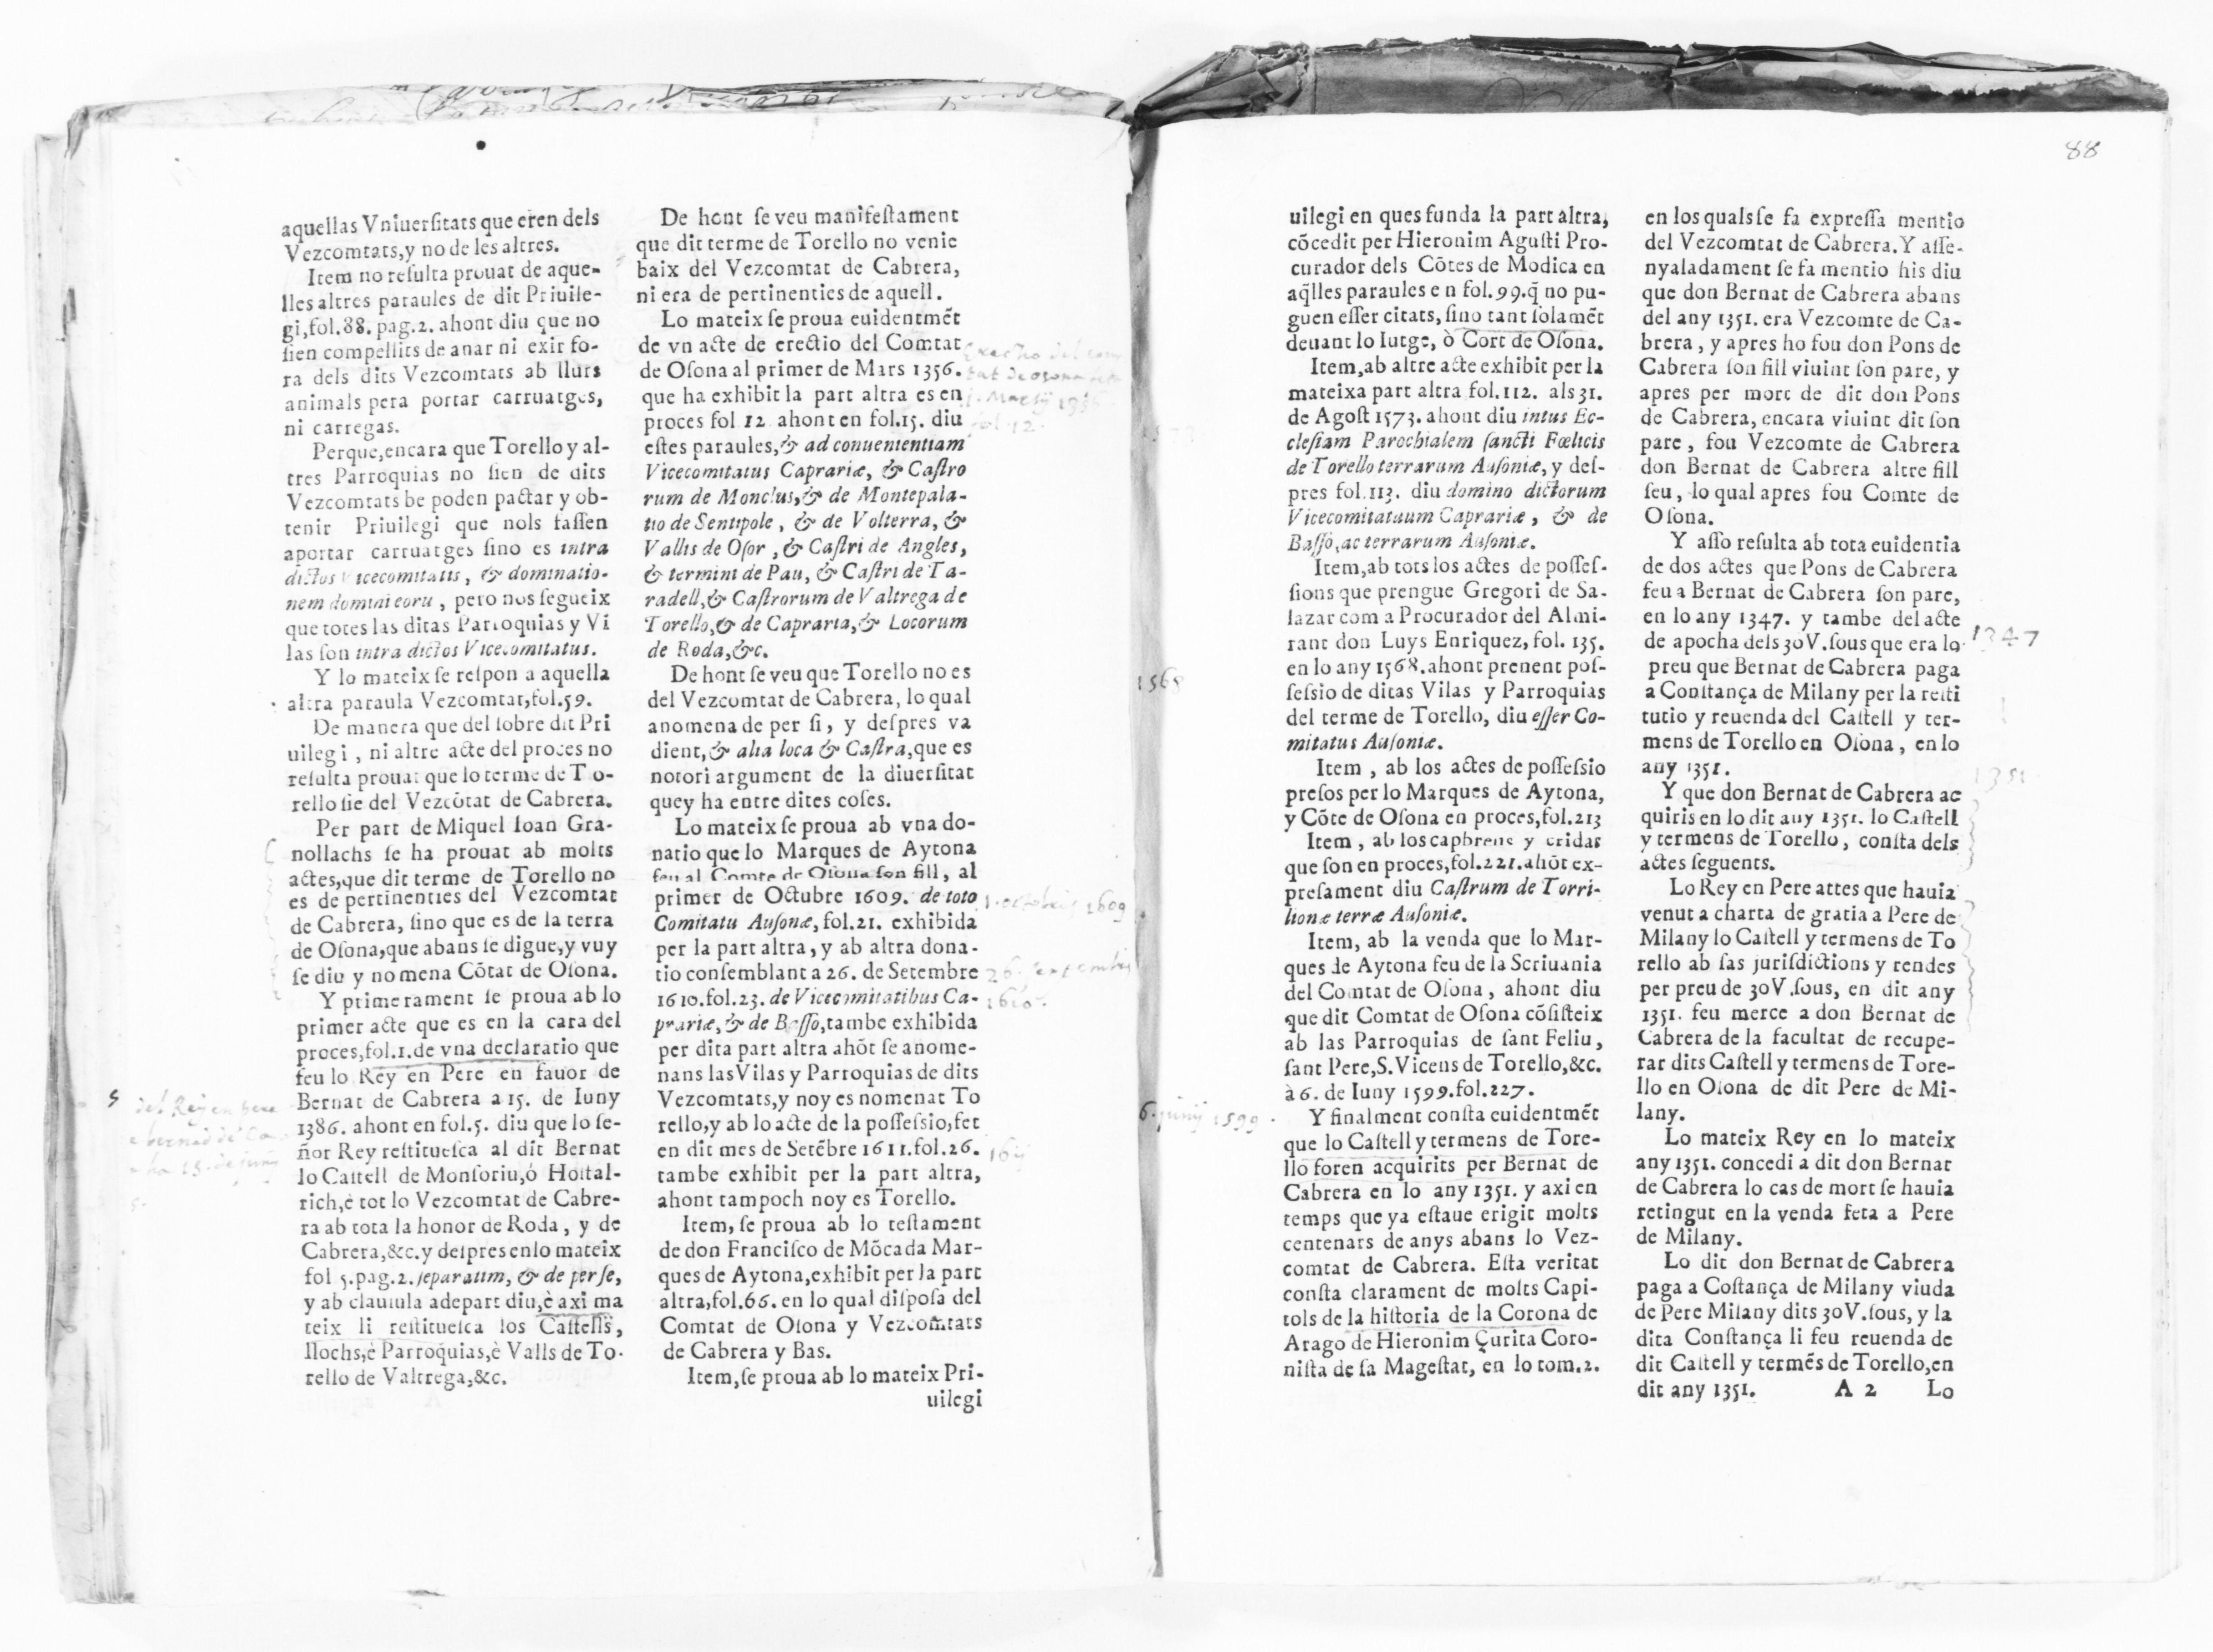 88
aquellas Vniuerſitats que eren dels
Vezcomtats,y no de les altres.
Item no reſulta prouat de aque-
lles altres paraules de dit Priuile-
gi,fol.88. pag.2. ahont diu que no
ſien compellits de anar ni exir fo-
ra dels dits Vezcomtats ab llurs
animals pera portar carruatges,
ni carregas.
Perque,encara que Torello y al-
tres Parroquias no ſien de dits
Vezcomtats be poden pactar y ob-
tenir Priuilegi que nols faſſen
aportar carruatges ſino es intra
dictos Vicecomitatis, & dominatio-
nem domini eorũ, pero nos ſegueix
que totes las ditas Parroquias y Vi
las ſon intra dictos Vicecomitatus.
Y lo mateix ſe reſpon a aquella
altra paraula Vezcomtat,fol.59.
De manera que del ſobre dit Pri
uilegi, ni altre acte del proces no
reſulta prouat que lo terme de To-
rello ſie del Vezcõtat de Cabrera.
Per part de Miquel Ioan Gra-
nollachs ſe ha prouat ab molts
actes,que dit terme de Torello no
es de pertinenties del Vezcomtat
de Cabrera, ſino que es de la terra
de Oſona,que abans ſe digue,y vuy
ſe diu y nomena Cõtat de Oſona.
Y primerament ſe proua ab lo
primer acte que es en la cara del
proces,fol.1.de vna declaratio que
feu lo Rey en Pere en fauor de
Bernat de Cabrera a 15. de Iuny
1386. ahont en fol.5. diu que lo ſe-
ñor Rey reſtitueſca al dit Bernat
lo Caſtell de Monſoriu,ò Hoſtal-
rich,è tot lo Vezcomtat de Cabre-
ra ab tota la honor de Roda, y de
Cabrera,&c.y deſpres en lo mateix
fol 5.pag.2. ſeparatim, & de per ſe,
y ab clauſula adepart diu,è axi ma
teix li reſtitueſca los Caſtells,
llochs,è Parroquias,è Valls de To-
rello de Valtrega,&c.
De hont ſe veu manifeſtament
que dit terme de Torello no venie
baix del Vezcomtat de Cabrera,
ni era de pertinenties de aquell.
Lo mateix ſe proua euidentmẽt
de vn acte de erectio del Comtat
de Oſona al primer de Mars 1356.
que ha exhibit la part altra es en
proces fol 12 ahont en fol.15. diu
eſtes paraules,& ad conuenientiam
Vicecomitatus Caprariæ, & Caſtro
rum de Monclus,& de Montepala-
tio de Sentipole, & de Volterra, &
Vallis de Oſor, & Caſtri de Angles,
& termini de Pau, & Caſtri de Ta-
radell,& Caſtrorum de Valtrega de
Torello,& de Capraria,& Locorum
de Roda,&c.
De hont ſe veu que Torello no es
del Vezcomtat de Cabrera, lo qual
anomena de per ſi, y deſpres va
dient,& alia loca & Caſtra,que es
notori argument de la diuerſitat
quey ha entre dites coſes.
Lo mateix ſe proua ab vna do-
natio que lo Marques de Aytona
feu al Comte de Oſona ſon fill, al
primer de Octubre 1609. de toto
Comitatu Auſonæ, fol.21. exhibida
per la part altra, y ab altra dona-
tio conſemblant a 26. de Setembre
1610.fol.23. de Vicecomitatibus Ca-
prariæ, & de Baſſo,tambe exhibida
per dita part altra ahõt ſe anome-
nans las Vilas y Parroquias de dits
Vezcomtats,y noy es nomenat To
rello,y ab lo acte de la poſſeſsio,fet
en dit mes de Setẽbre 1611.fol.26.
tambe exhibit per la part altra,
ahont tampoch noy es Torello.
Item, ſe proua ab lo teſtament
de don Franciſco de Mõcada Mar-
ques de Aytona,exhibit per la part
altra,fol.66. en lo qual diſpoſa del
Comtat de Oſona y Vezcomtats
de Cabrera y Bas.
Item,ſe proua ab lo mateix Pri-
uilegi
1. octobris 1609
26. septembris
1610.
uilegi en ques funda la part altra,
cõcedit per Hieronim Aguſti Pro-
curador dels Cõtes de Modica en
aq̃lles paraules en fol.99.q̃ no pu-
guen eſſer citats, ſino tant ſolamẽt
deuant lo Iutge, ò Cort de Oſona.
Item,ab altre acte exhibit per la
mateixa part altra fol.112. als 31.
de Agoſt 1573. ahont diu intus Ec-
cleſiam Parochialem ſancti Fœlicis
de Torello terrarum Auſoniæ, y deſ-
pres fol.113. diu domino dictorum
Vicecomitatuum Caprariæ, & de
Baſſo,ac terrarum Auſoniæ.
Item,ab tots los actes de poſſeſ-
ſions que prengue Gregori de Sa-
lazar com a Procurador del Almi-
rant don Luys Enriquez, fol. 135.
en lo any 1568.ahont prenent poſ-
ſeſsio de ditas Vilas y Parroquias
del terme de Torello, diu eſſer Co-
mitatus Auſoniæ.
Item, ab los actes de poſſeſsio
preſos per lo Marques de Aytona,
y Cõte de Oſona en proces,fol.213
Item, ab los capbreus y cridas
que ſon en proces,fol.221.ahõt ex-
preſament diu Caſtrum de Torri-
lionæ terræ Auſoniæ.
Item, ab la venda que lo Mar-
ques de Aytona feu de la Scriuania
del Comtat de Oſona, ahont diu
que dit Comtat de Oſona cõſiſteix
ab las Parroquias de ſant Feliu,
ſant Pere,S.Vicens de Torello,&c.
à 6. de Iuny 1599.fol.227.
Y finalment conſta euidentmẽt
que lo Caſtell y termens de Tore-
llo foren acquirits per Bernat de
Cabrera en lo any 1351. y axi en
temps que ya eſtaue erigit molts
centenars de anys abans lo Vez-
comtat de Cabrera. Eſta veritat
conſta clarament de molts Capi-
tols de la hiſtoria de la Corona de
Arago de Hieronim Çurita Coro-
niſta de ſa Mageſtat, en lo tom.2.
1568
6. junij 1599.
en los quals ſe fa expreſſa mentio
del Vezcomtat de Cabrera.Y aſſe-
nyaladament ſe fa mentio his diu
que don Bernat de Cabrera abans
del any 1351. era Vezcomte de Ca-
brera, y apres ho fou don Pons de
Cabrera ſon fill viuint ſon pare, y
apres per mort de dit don Pons
de Cabrera, encara viuint dit ſon
pare, fou Vezcomte de Cabrera
don Bernat de Cabrera altre fill
ſeu, lo qual apres fou Comte de
Oſona.
Y aſſo reſulta ab tota euidentia
de dos actes que Pons de Cabrera
feu a Bernat de Cabrera ſon pare,
en lo any 1347. y tambe del acte
de apocha dels 30V.ſous que era lo
preu que Bernat de Cabrera paga
a Conſtança de Milany per la reſti
tutio y reuenda del Caſtell y ter-
mens de Torello en Oſona, en lo
any 1351.
Y que don Bernat de Cabrera ac
quiris en lo dit any 1351. lo Caſtell
y termens de Torello, conſta dels
actes ſeguents.
Lo Rey en Pere attes que hauia
venut a charta de gratia a Pere de
Milany lo Caſtell y termens de To
rello ab ſas jurisdictions y rendes
per preu de 30V.ſous, en dit any
1351. feu merce a don Bernat de
Cabrera de la facultat de recupe-
rar dits Caſtell y termens de Tore-
llo en Oſona de dit Pere de Mi-
lany.
Lo mateix Rey en lo mateix
any 1351. concedi a dit don Bernat
de Cabrera lo cas de mort ſe hauia
retingut en la venda feta a Pere
de Milany.
Lo dit don Bernat de Cabrera
paga a Coſtança de Milany viuda
de Pere Milany dits 30V.ſous, y la
dita Conſtança li feu reuenda de
dit Caſtell y termẽs de Torello,en
dit any 1351. A 2 Lo
1347
1351